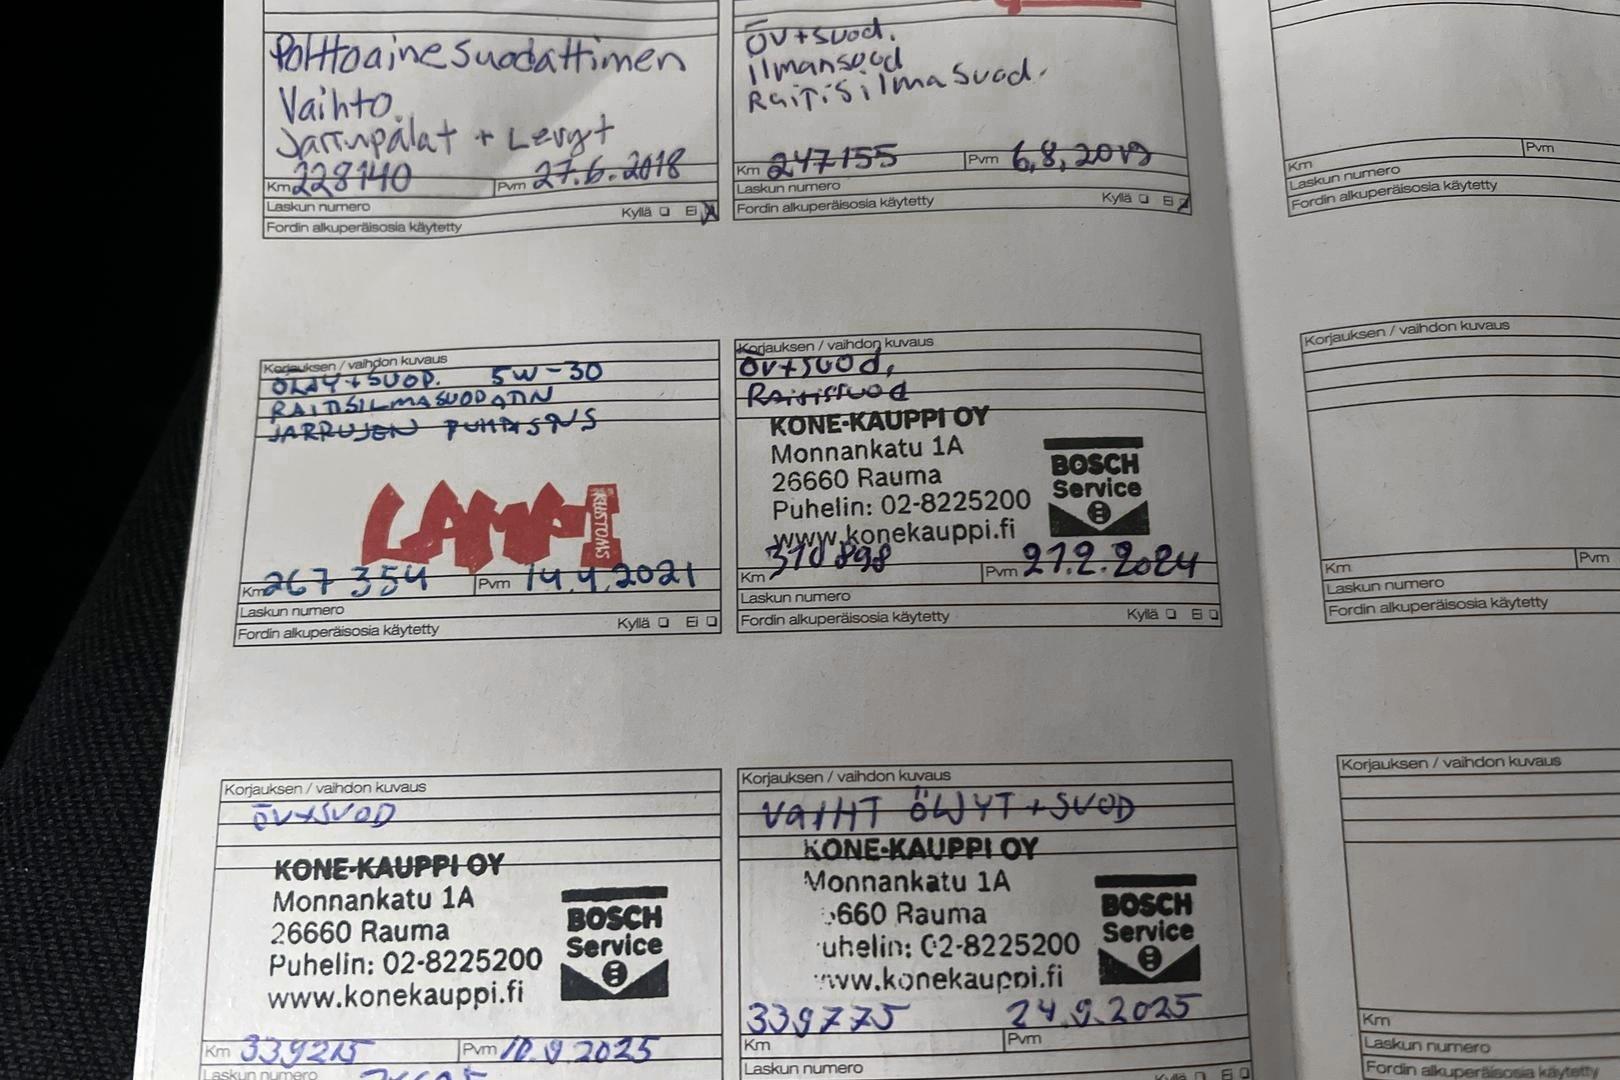 Polttoainesuodattimen
Vaihto.
Jarrupalat + Levyt
Km 228140 Pvm 27.6.2018
Laskun numero
Kyllä Ei
Fordin alkuperäisosia käytetty
ÖV+suod.
Ilmansuod
Raitisilmasuod.
Km 247155 Pvm 6,8,2019
Laskun numero
Fordin alkuperäisosia käytetty Kyllä Ei
Km Pvm
Laskun numero
Fordin alkuperäisosia käytetty
Korjauksen / vaihdon kuvaus
ÖLJY+SUOD. 5W-30
RAITISILMASUODATIN
JARRUJEN PUHDISTUS
LAMPI
KUSTOMS
Km 267 354 Pvm 14.4.2021
Laskun numero
Fordin alkuperäisosia käytetty Kyllä Ei
Korjauksen / vaihdon kuvaus
ÖV+SUOD,
Raitissuod
KONE-KAUPPI OY
Monnankatu 1A
26660 Rauma
Puhelin: 02-8225200
www.konekauppi.fi
BOSCH
Service
Km 310 898 Pvm 21.2.2024
Laskun numero
Fordin alkuperäisosia käytetty Kyllä Ei
Korjauksen / vaihdon kuvaus
Km Pvm
Laskun numero
Fordin alkuperäisosia käytetty
Korjauksen / vaihdon kuvaus
ÖV+SUOD
KONE-KAUPPI OY
Monnankatu 1A
26660 Rauma
Puhelin: 02-8225200
www.konekauppi.fi
BOSCH
Service
Km 339215 Pvm 10.9.2025
Laskun numero
Korjauksen / vaihdon kuvaus
VAIHT ÖLJYT+SUOD
KONE-KAUPPI OY
Monnankatu 1A
660 Rauma
uhelin: 02-8225200
www.konekauppi.fi
BOSCH
Service
339775 24.9.2025
Km Pvm
Laskun numero
Kyllä Ei
Korjauksen / vaihdon kuvaus
Km
Laskun numero
Fordin alkuperäisosia käytetty